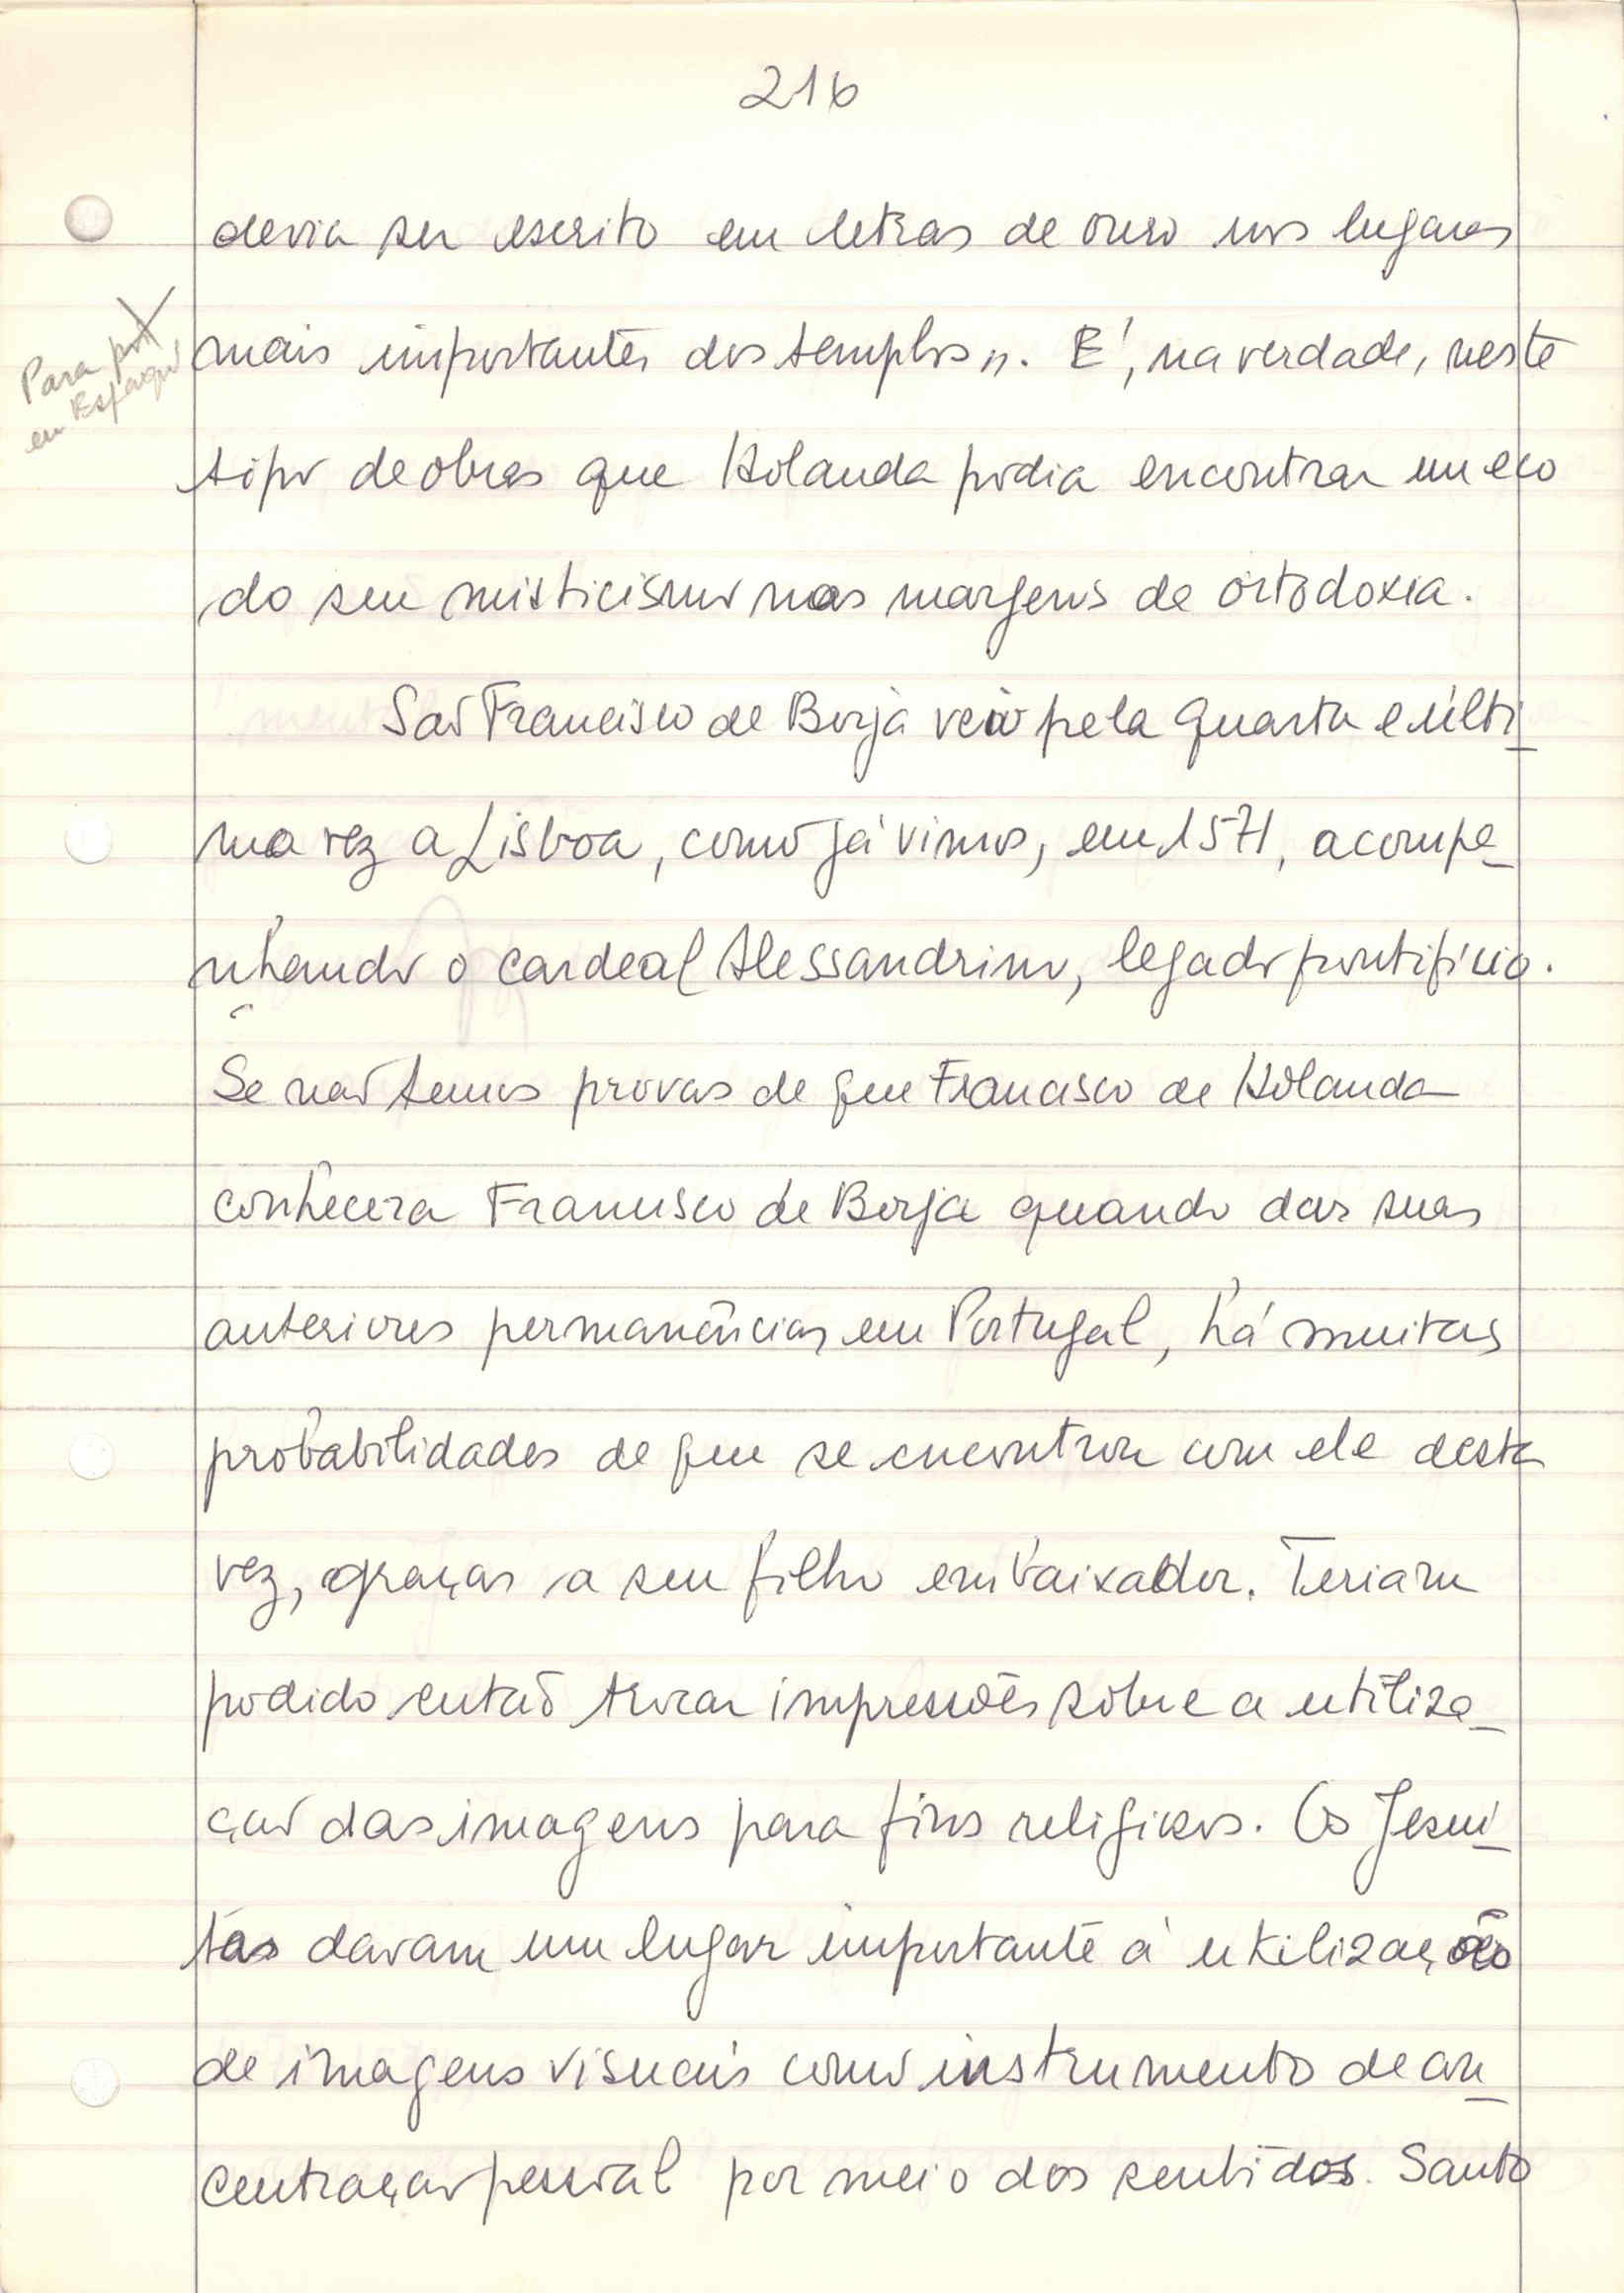 216
devia ser escrito em letras de ouro nos lugares
mais importantes dos templos». É, na verdade, neste
tipo de obras que Holanda podia encontrar um eco
do seu misticismo nas margens da ortodoxia.
São Francisco de Borja veio pela quarta e últi-
ma vez a Lisboa, como já vimos, em 1571, acompa-
nhando o cardeal Alessandrino, legado pontifício.
Se não temos provas de que Francisco de Holanda
conhecera Francisco de Borja quando das suas
anteriores permanências em Portugal, há muitas
probabilidades de que se encontrou com ele desta
vez, graças a seu filho embaixador. Teriam
podido então trocar impressões sobre a utiliza-
ção das imagens para fins religiosos. Os Jesuí-
tas davam um lugar importante à utilização
de imagens visuais como instrumento de con-
centração pessoal por meio dos sentidos. Santo
Para
em